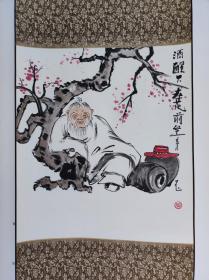 酒醒只在花前坐